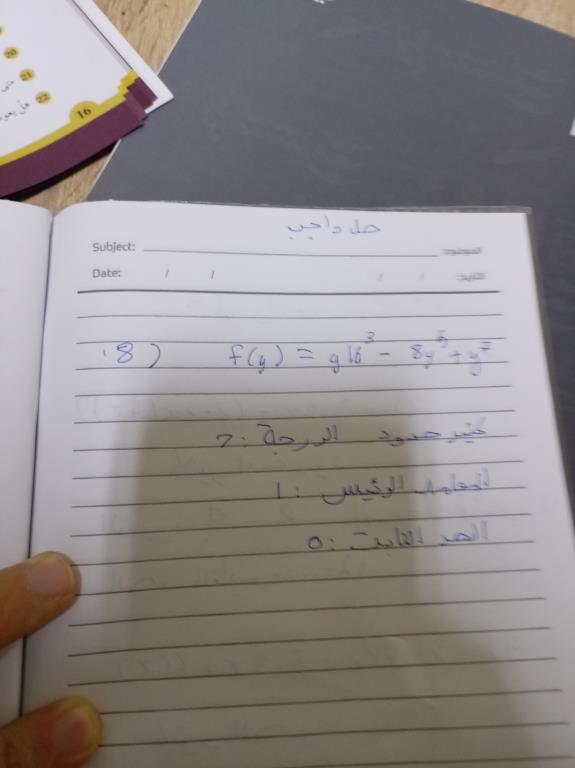 20
21 متى
22 هل يعو
16
حل واجب
Subject: الموضوع:
Date: / / / / التاريخ:
18) f(y) = y18³ - 8y⁵ + y⁷
كثير حدود الدرجة: 7
المعامل الرئيس: 1
الحد الثابت: 0